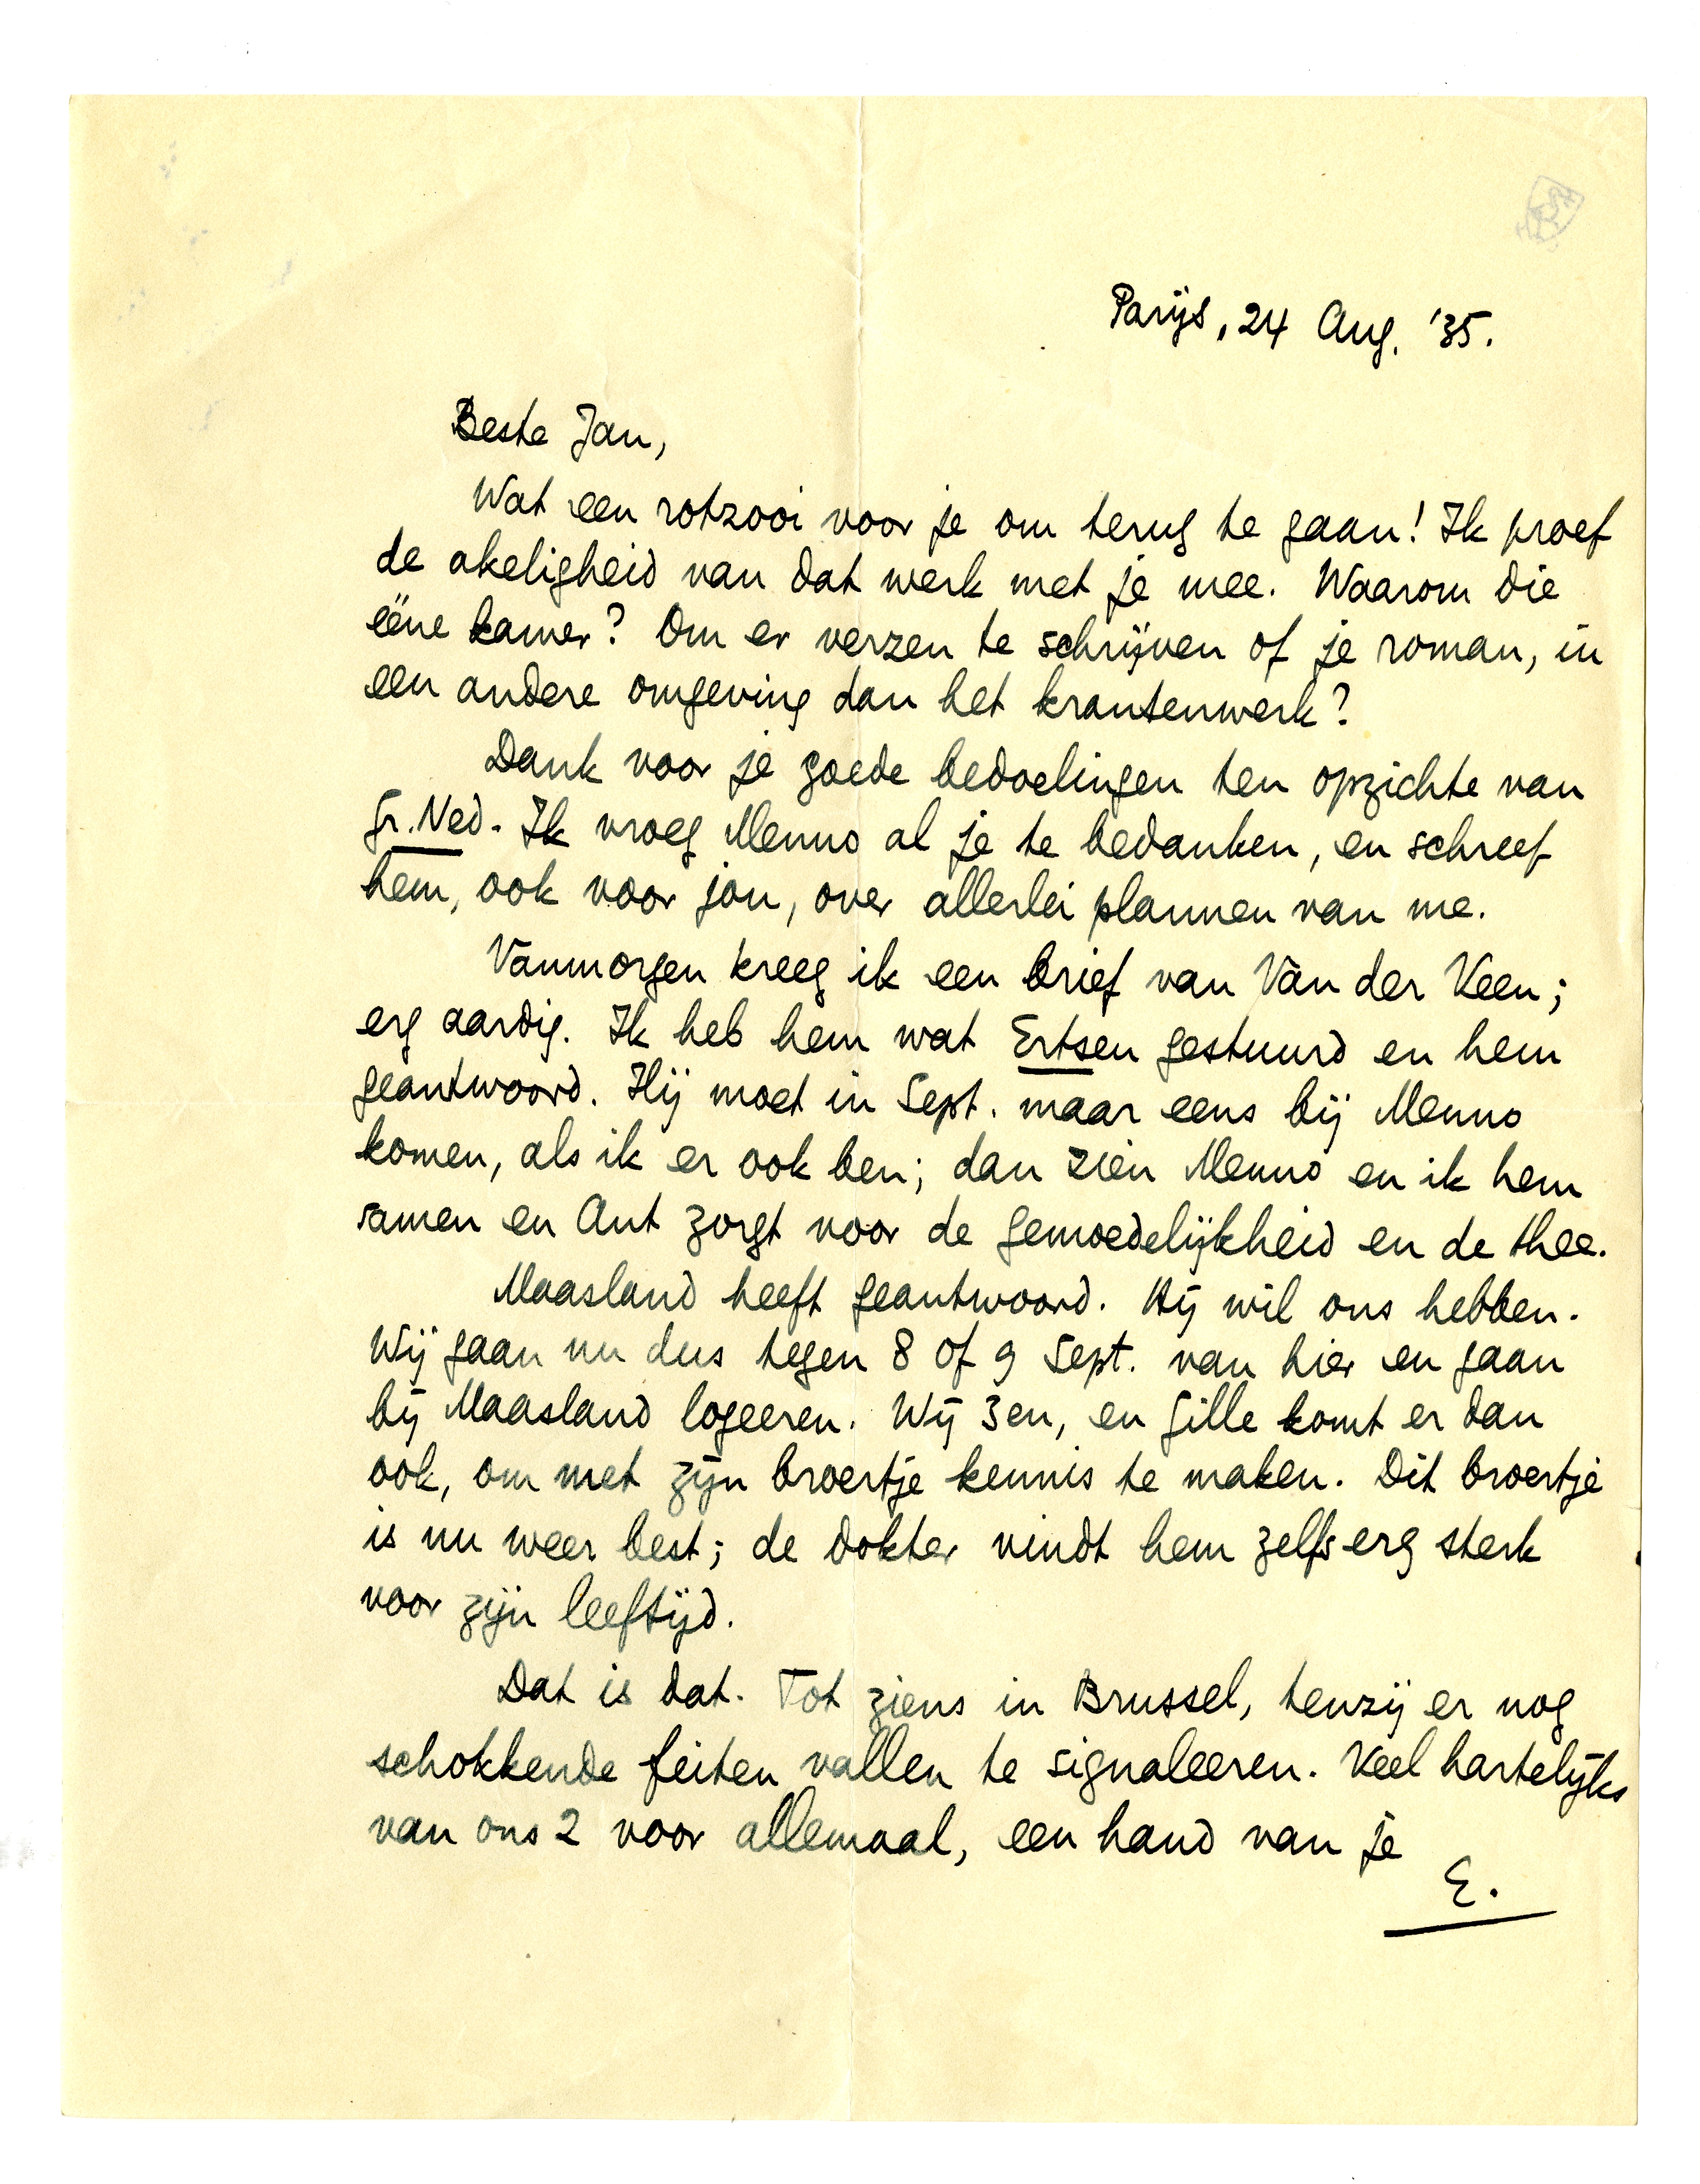 Parijs, 24 Aug. '35.
Beste Jan,
Wat een rotzooi voor je om terug te gaan! Ik proef
de akeligheid van dat werk met je mee. Waarom die
ééne kamer? Om er verzen te schrijven of je roman, in
een andere omgeving dan het krantenwerk?
Dank voor je goede bedoelingen ten opzichte van
Gr. Ned. Ik vroeg Menno al je te bedanken, en schreef
hem, ook voor jou, over allerlei plannen van me.
Vanmorgen kreeg ik een brief van Van der Veen;
erg aardig. Ik heb hem wat Ertsen gestuurd en hem
geantwoord. Hij moet in Sept. maar eens bij Menno
komen, als ik er ook ben; dan zien Menno en ik hem
samen en Ant zorgt voor de gemoedelijkheid en de thee.
Maasland heeft geantwoord. Hij wil ons hebben.
Wij gaan nu dus tegen 8 of 9 Sept. van hier en gaan
bij Maasland logeeren. Wij 3en, en Gille komt er dan
ook, om met zijn broertje kennis te maken. Dit broertje
is nu weer best; de dokter vindt hem zelfs erg sterk
voor zijn leeftijd.
Dat is dat. Tot ziens in Brussel, tenzij er nog
schokkende feiten vallen te signaleeren. Veel hartelijks
van ons 2 voor allemaal, een hand van je
E.